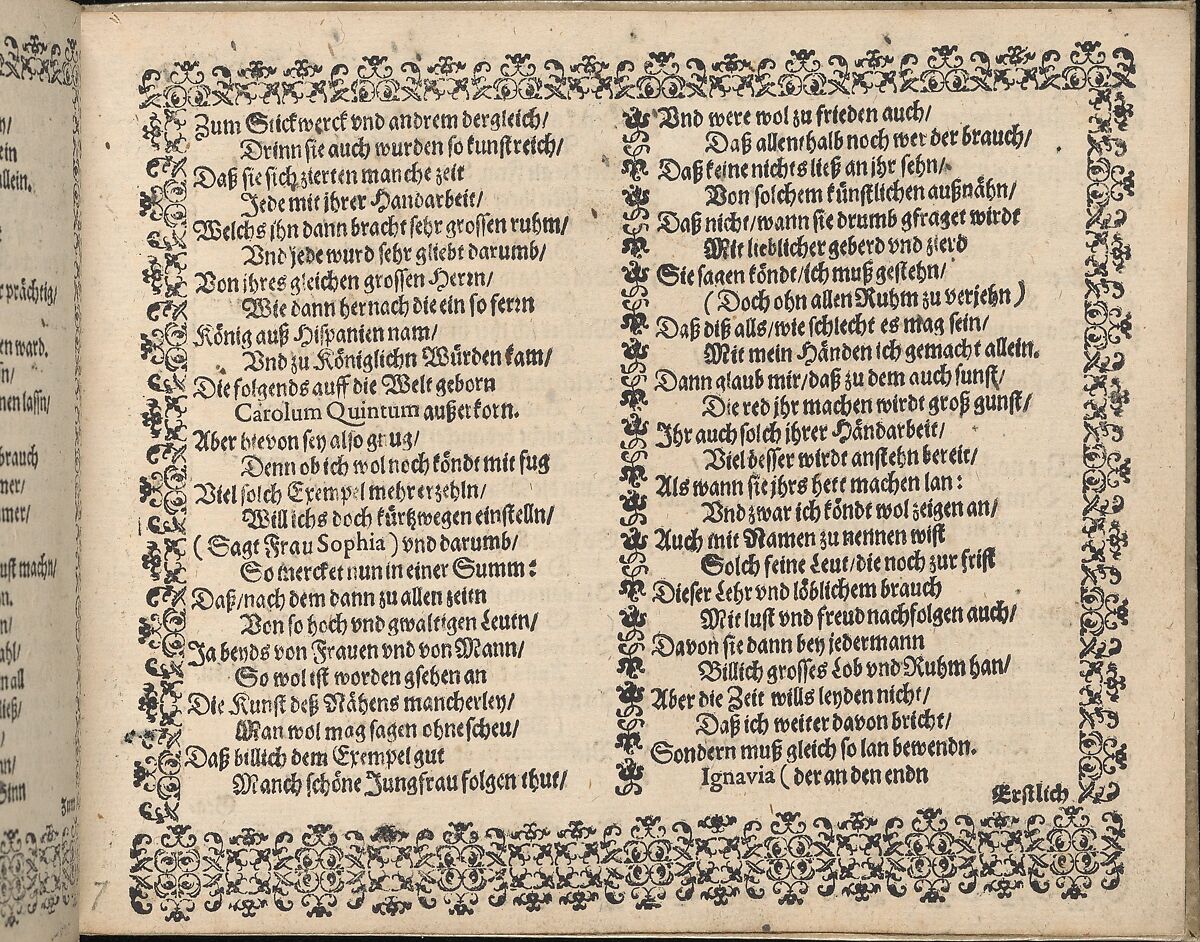 n/
ein
allein.
r prächtig/
en ward.
n/
nen lassn/
brauch
mer/
mer/
ust machn/
n.
n/
ahl/
n all
ließ/
/
nn/
Sinn
Zum
Zum Stückwerck vnd andrem dergleich/
Drinn sie auch wurden so kunstreich/
Daß sie sich zierten manche zeit
Jede mit ihrer Handarbeit/
Welchs ihn dann bracht sehr grossen ruhm/
Vnd jede wurd sehr gliebt darumb/
Von ihres gleichen grossen Herrn/
Wie dann hernach die ein so ferrn
König auß Hispanien nam/
Vnd zu Königlichn Würden kam/
Die folgends auff die Welt geborn
Carolum Quintum außerkorn.
Aber hievon sey also gnug/
Denn ob ich wol noch köndt mit fug
Viel solch Exempel mehr erzehln/
Will ichs doch kürtz wegen einstelln/
(Sagt Frau Sophia) vnd darumb/
So mercket nun in einer Summ:
Daß/nach dem dann zu allen zeitn
Von so hoch vnd gwaltigen Leutn/
Ja beyds von Frauen vnd von Mann/
So wol ist worden gsehen an
Die Kunst deß Nähens mancherley/
Man wol mag sagen ohne scheu/
Daß billich dem Exempel gut
Manch schöne Jungfrau folgen thut/
Vnd were wol zu frieden auch/
Daß allenthalb noch wer der brauch/
Daß keine nichts ließ an jhr sehn/
Von solchem künstlichen außnähn/
Daß nicht/wann sie drumb gfraget wirdt
Mit lieblicher geberd vnd zierd
Sie sagen köndt/ich muß gestehn/
(Doch ohn allen Ruhm zu verjehn)
Daß diß alls/wie schlecht es mag sein/
Mit mein Händen ich gemacht allein.
Dann glaub mir/daß zu dem auch sunst/
Die red jhr machen wirdt groß gunst/
Jhr auch solch ihrer Händarbeit/
Viel besser wirdt anstehn bereit/
Als wann sie jhrs hett machen lan:
Vnd zwar ich köndt wol zeigen an/
Auch mit Namen zu nennen wist
Solch feine Leut/die noch zur frist
Dieser Lehr vnd löblichem brauch
Mit lust vnd freud nachfolgen auch/
Davon sie dann bey jedermann
Billich grosses Lob vnd Ruhm han/
Aber die Zeit wills leyden nicht/
Daß ich weiter davon bricht/
Sondern muß gleich so lan bewendn.
Ignavia (der an den endn
Erstlich
7